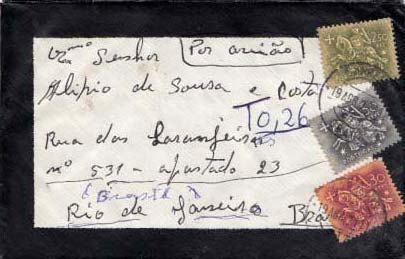 Exmº Senhor
Por avião
Alipio de Sousa e Costa
T0,26
Rua das Laranjeiras
nº 531 - apartado 23
(Brasil)
Rio de Janeiro Bra